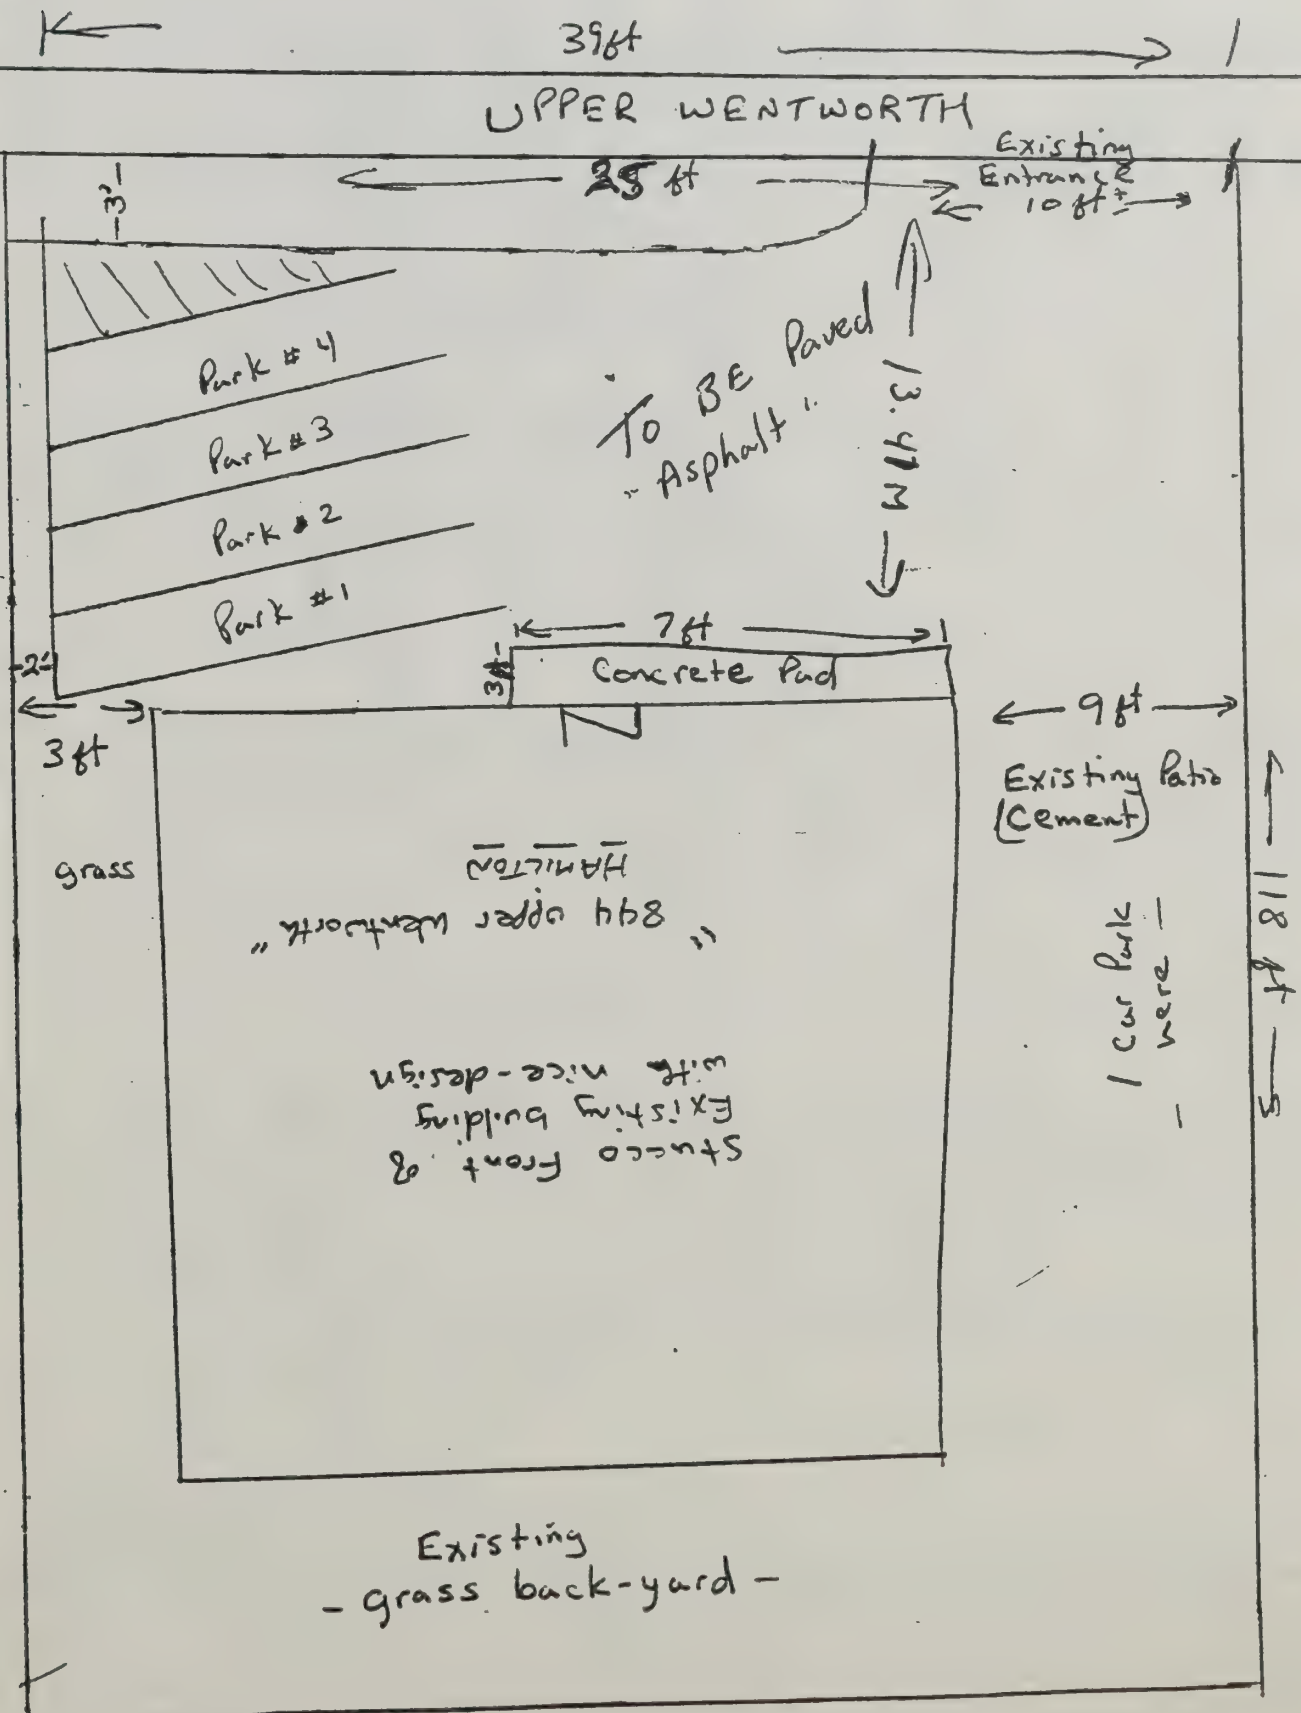 39ft
UPPER WENTWORTH
Existing
Entrance
10 ft ±
25 ft
3'
Park # 4
Park # 3
Park # 2
Park # 1
To BE Paved
"Asphalt"
13.41 M
2'
3 ft
7 ft
3ft
Concrete Pad
9 ft
Existing Patio
(Cement)
1 Car Park
here
118 ft
grass
"844 upper wentworth"
HAMILTON
Stucco Front of
Existing building
with nice-design
Existing
- grass back-yard -